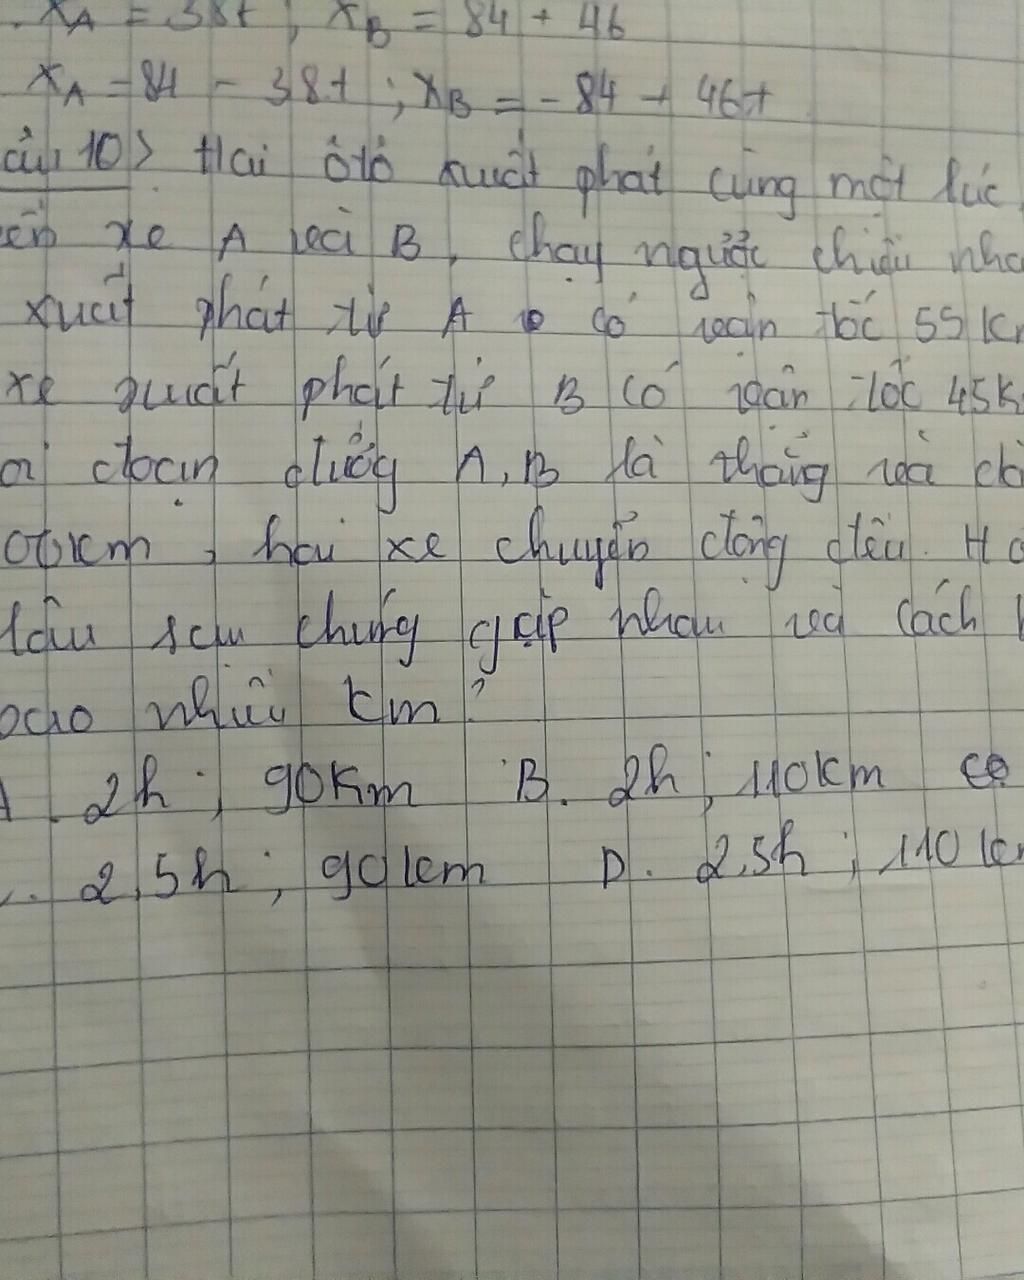 . xA = 38t ; xB = 84 + 46
xA = 84 - 38t ; xB = -84 + 46t
câu 10> Hai ôtô xuất phát cùng một lúc,
xe A và B, chạy ngược chiều nha
xuất phát từ A có vận tốc 55 k
xe xuất phát từ B có vận tốc 45k
đoạn đường A, B là thẳng và
00km, hai xe chuyển động đều. H
lâu sau chúng gặp nhau và cách
bao nhiêu km?
A. 2h ; 90km B. 2h ; 110km
. 2,5h ; 90km D. 2,5h ; 110k